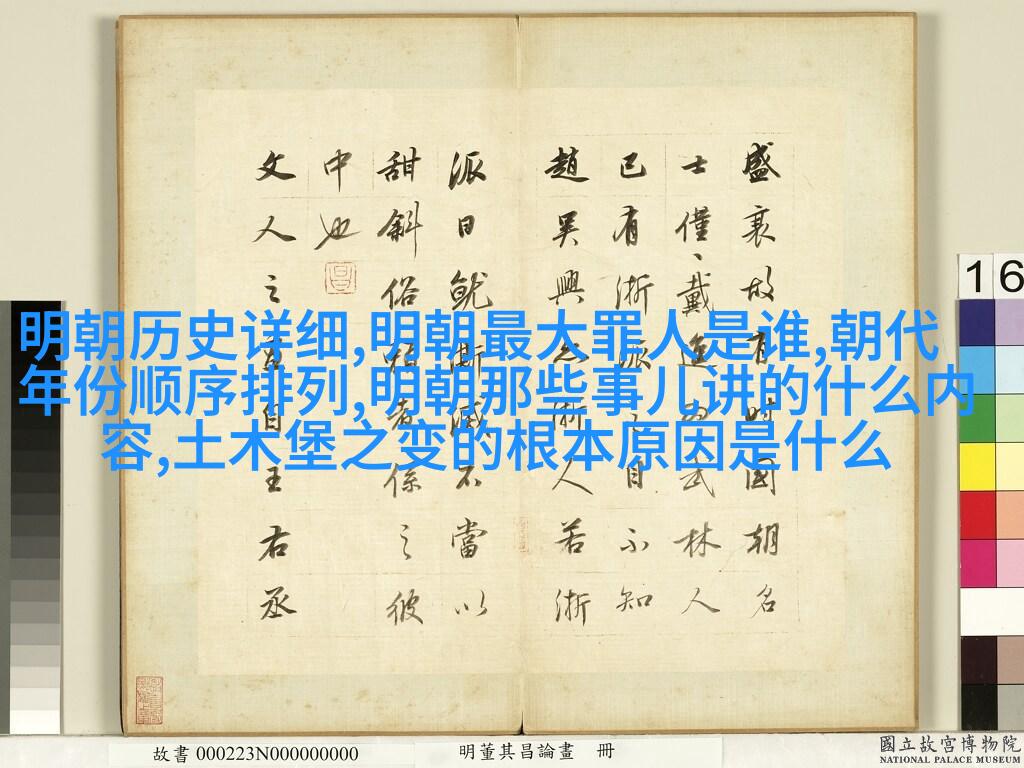 明朝历史详细,明朝最大罪人是谁,朝代
年份顺序排列,明朝那些事儿讲的什么内
容,土木堡之变的根本原因是什么
盛衰故有時國朝名
士僅戴進為武林人
已有浙派之目不知
趙吳興亦浙人若浙
派日就澌滅不當以
甜斜俗賴者係之彼
中也
文人之畫自王右丞
16
故書 000223N000000000
明董其昌論畫 冊
國立故宮博物院
NATIONAL PALACE MUSEUM